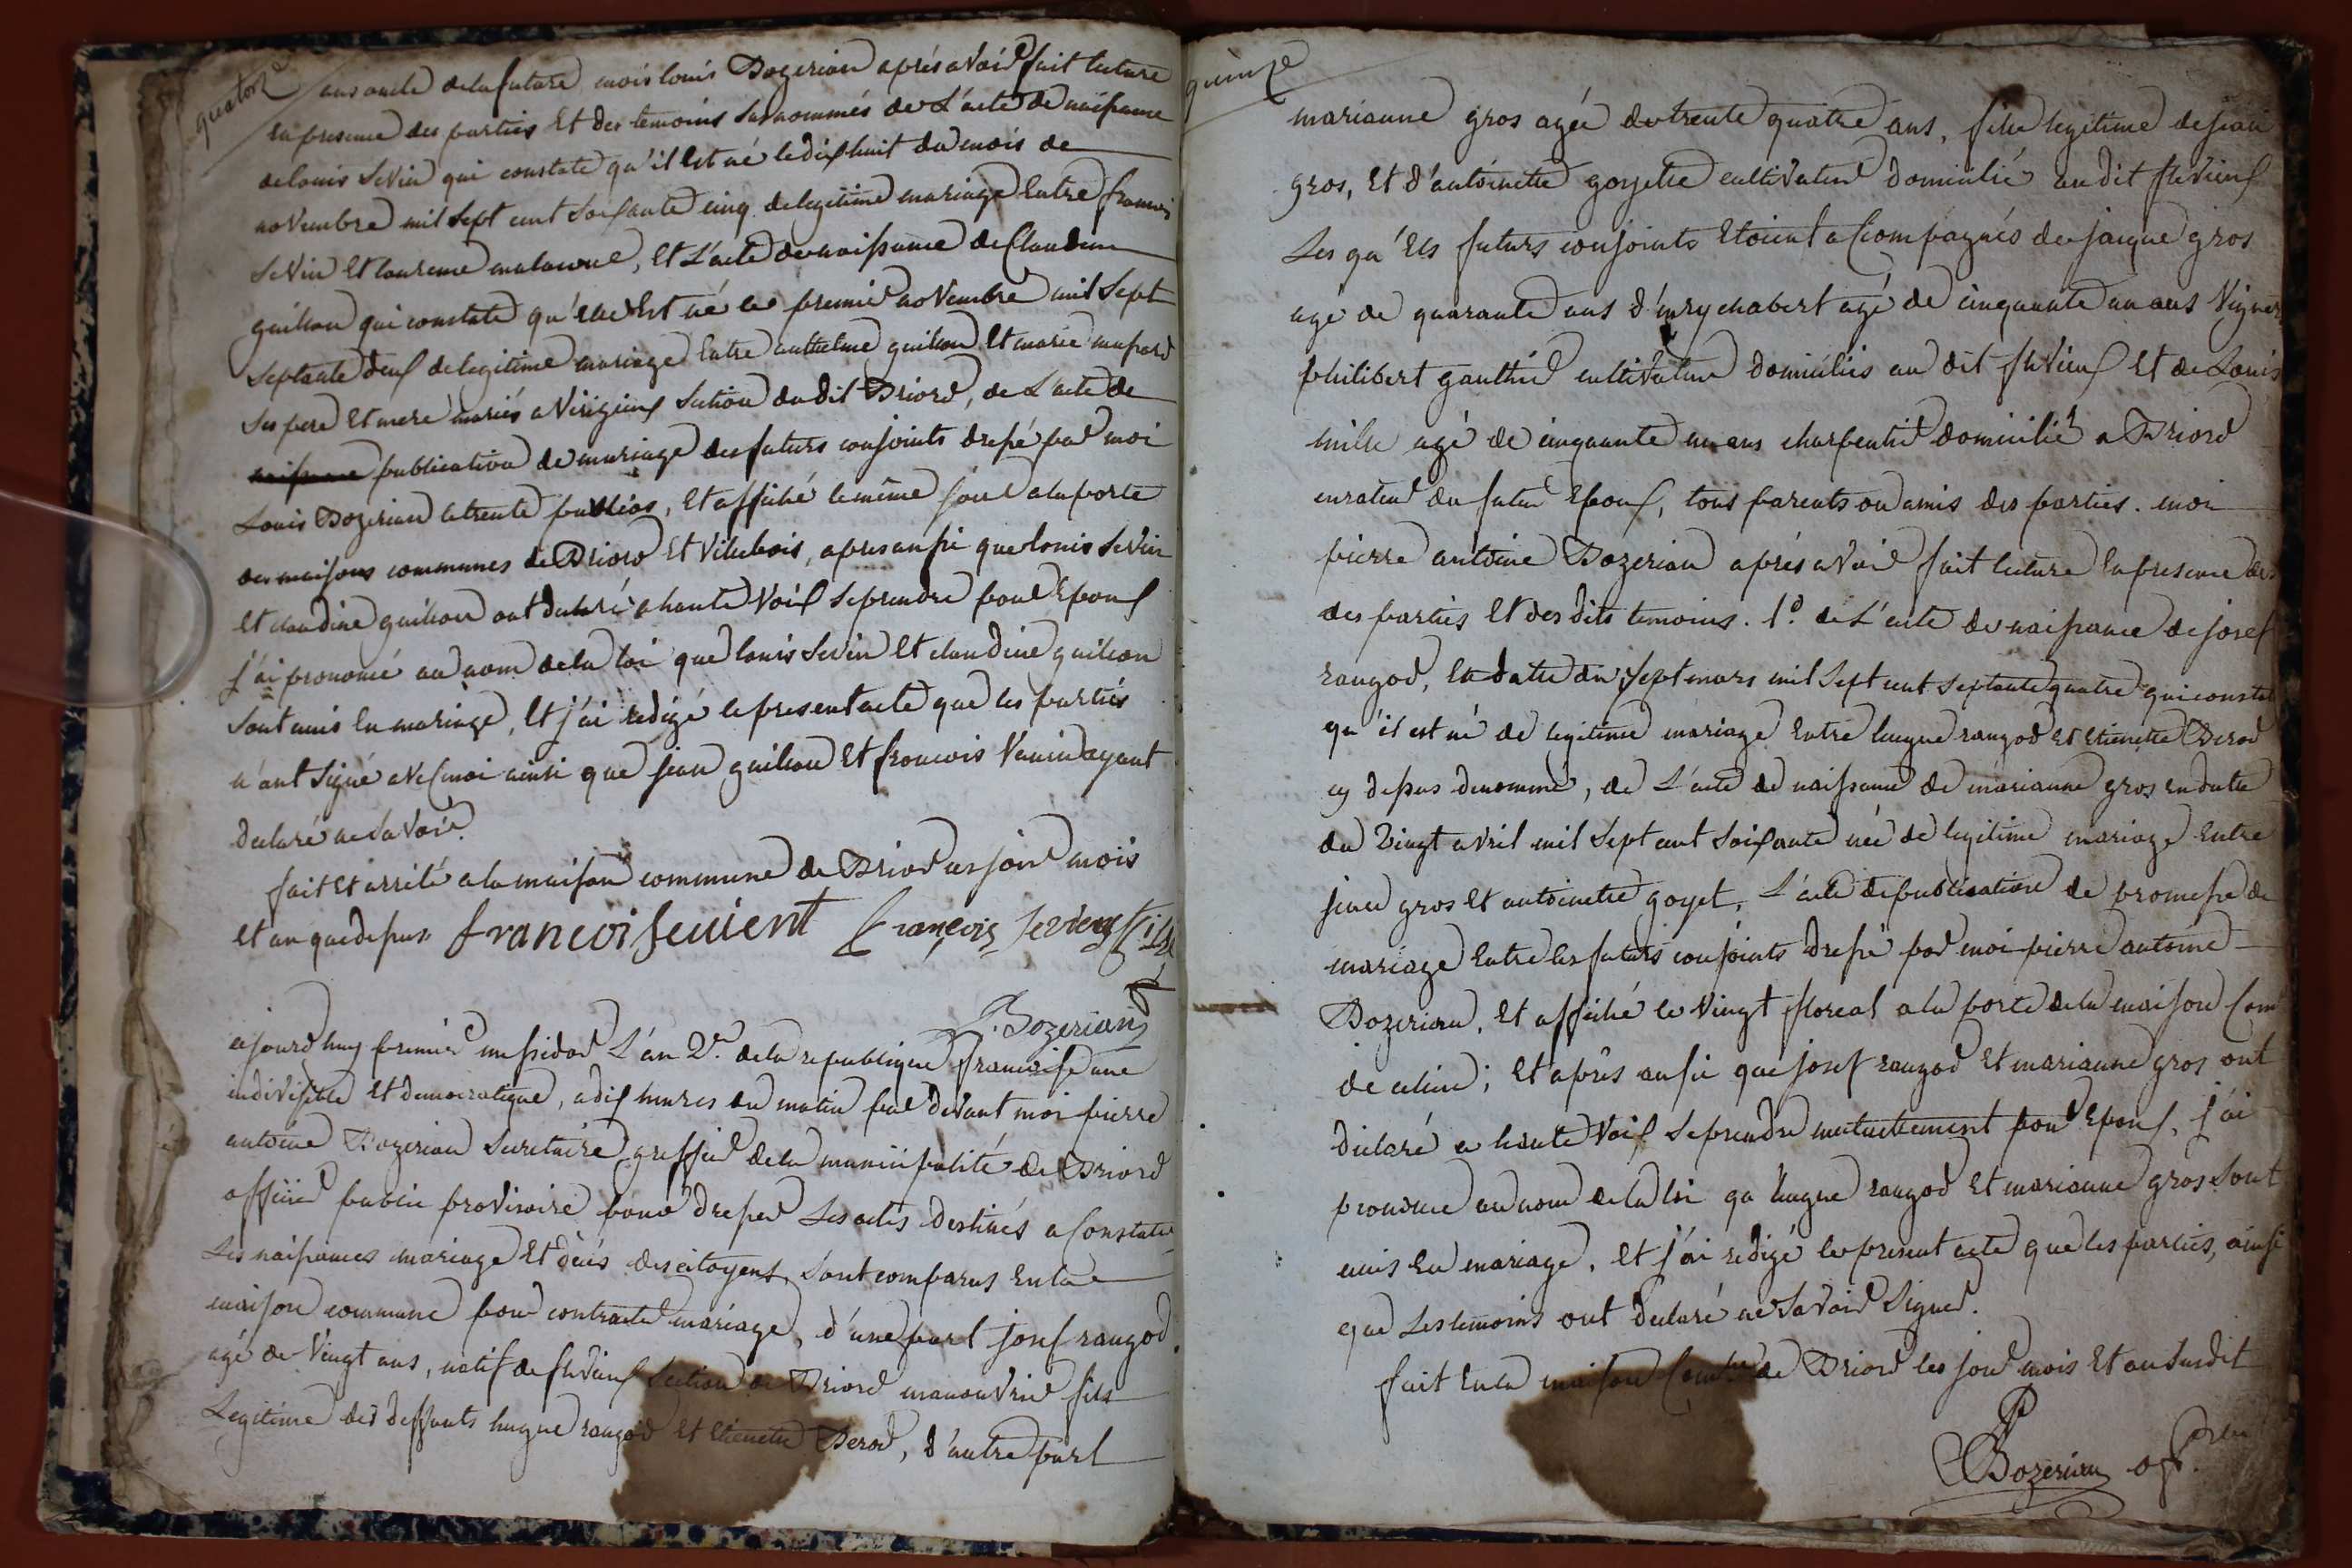 quatorze
ans oncle dela future, moi louis Bozerian aprés avoir fait lecture
en presence des parties Et des temoins susnommés de L'acte de naissance
de louis Sevin qui constate qu'il Est né le dix huit du mois de
novembre mil sept cent soixante cinq de legitime mariage Entre francois
Sevin Et laurence, Et L'acte de naissance de Claudine
guillon qui constate qu'elle Est né le premier novembre mil sept
septante deux de legitime mariage Entre anthelme guillon Et marie
Ses pere Et mere mariés a Virigieux Section dudit Briord, de L'acte de
naissance publication de mariage des futurs conjoints dressé par moi
Louis Bozerian le trente, Et affiché le même jour a la porte
des maisons communes de Briord Et Villebois, apres aussi que louis Sevin
Et claudine guillon ont declaré a haute voix se prendre pour Epoux
j'ai prononcé au nom de la loi que louis Sevin Et claudine guillon
sont unis En mariage, Et j'ai redigé le present acte que les parties
n'ont signé avec moi ainsi que jean guillon Et francois ayant
declaré ne savoir.
fait Et arrêté a la maison commune de Briord les jour mois
Et an que dessus francoi seuient François Servient fils
L. Bozerian
ajourd'huy premier messidor L'an 2e. de la republique francaise une
indivisible Et democratique, a dix heures du matin par devant moi pierre
antoine Bozerian Secretaire greffier de la municipalité de Briord
officier public provisoire pour dresser Les actes destinés a Constater
Les naissances mariage Et décés des citoyens, sont comparus En la
maison commune pour contracter mariage, d'une part josef rangod
agé de vingt ans, natif de flevieux Section de Briord manouvrier fils
Legitime des deffunts hugue rangod Et Etienette Berod, d'autre part
quinze
marianne gros agée de trente quatre ans, fille legitime de jean
gros, Et d'antoinette goyette cultivateur domicilié au dit flevieux
Les qu'Els futurs conjoints Etoient accompagnés de jacque gros
agé de quarante ans d'enry chabert agé de cinquante un ans
philibert gauthier cultivateur domiciliés au dit flevieux Et de Louis
mille agé de cinquante un ans charpentier domicilié a Briord
curateur du futur Epoux, tous parents ou amis des parties. moi
pierre antoine Bozerian aprés avoir fait lecture En presence des
des parties Et des dits temoins. 1o. de L'acte de naissance de josef
rangod, En datte du sept mars mil sept cent septante quatre qui constate
qu'il est né de legitime mariage Entre hugue rangod Et Etienette Berod
cy dessus denommé, de L'acte de naissance de marianne gros En datte
du vingt avril mil sept cent soixante née de legitime mariage Entre
jean gros et antoinette goyet, L'acte de publication de promesse de
mariage Entre les futurs conjoints dressé par moi pierre antoine
Bozerian, Et affiché le vingt floreal a la porte de la maison Com
de; Et aprés aussi que josef rangod Et marianne gros ont
declaré a haute voix se prendre mutuellement pour Epoux, j'ai
prononcé au nom de la loi qu'hugue rangod Et marianne gros sont
unis En mariage, Et j'ai redigé le present acte que les parties, ainsi
que Les temoins ont declaré ne savoir signer.
fait En la maison de Briord les jour mois Et an susdit
Bozerian off.